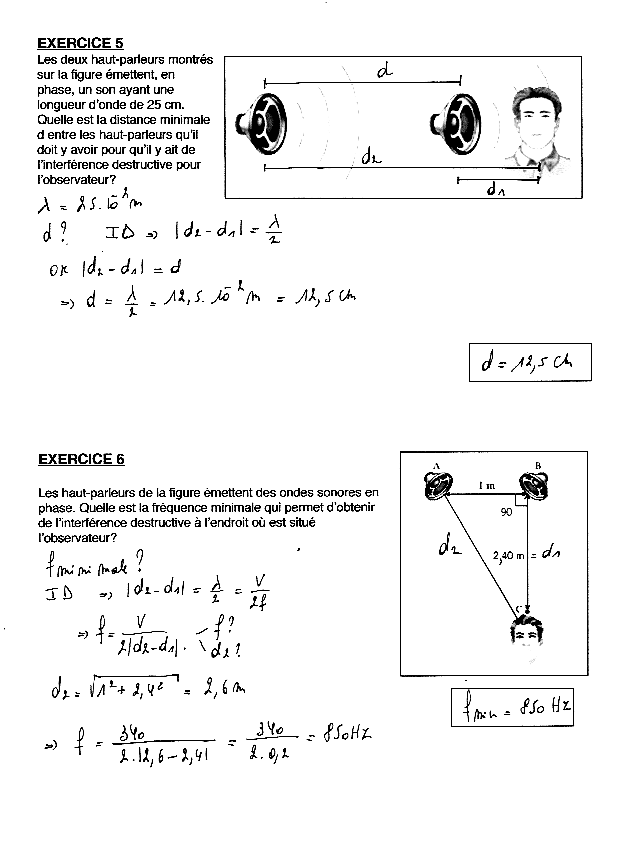 EXERCICE 5
Les deux haut-parleurs montrés
sur la figure émettent, en
phase, un son ayant une
longueur d'onde de 25 cm.
Quelle est la distance minimale
d entre les haut-parleurs qu'il
doit y avoir pour qu'il y ait de
l'interférence destructive pour
l'observateur?
d
d2
d1
λ = 25.10^-2 m
d ? ID => |d2 - d1| = λ/2
or |d2 - d1| = d
=> d = λ/2 = 12,5.10^-2 m = 12,5 cm
d = 12,5 cm
EXERCICE 6
Les haut-parleurs de la figure émettent des ondes sonores en
phase. Quelle est la fréquence minimale qui permet d'obtenir
de l'interférence destructive à l'endroit où est situé
l'observateur?
A B
1 m
90
d2 2,40 m = d1
C
f minimale ?
ID => |d2 - d1| = λ/2 = V/2f
=> f = V/2|d2 - d1| . f ? d2 ?
d2 = √1² + 2,4² = 2,6 m
=> f = 340/2.|2,6 - 2,4| = 340/2.0,2 = 850 Hz
f min = 850 Hz